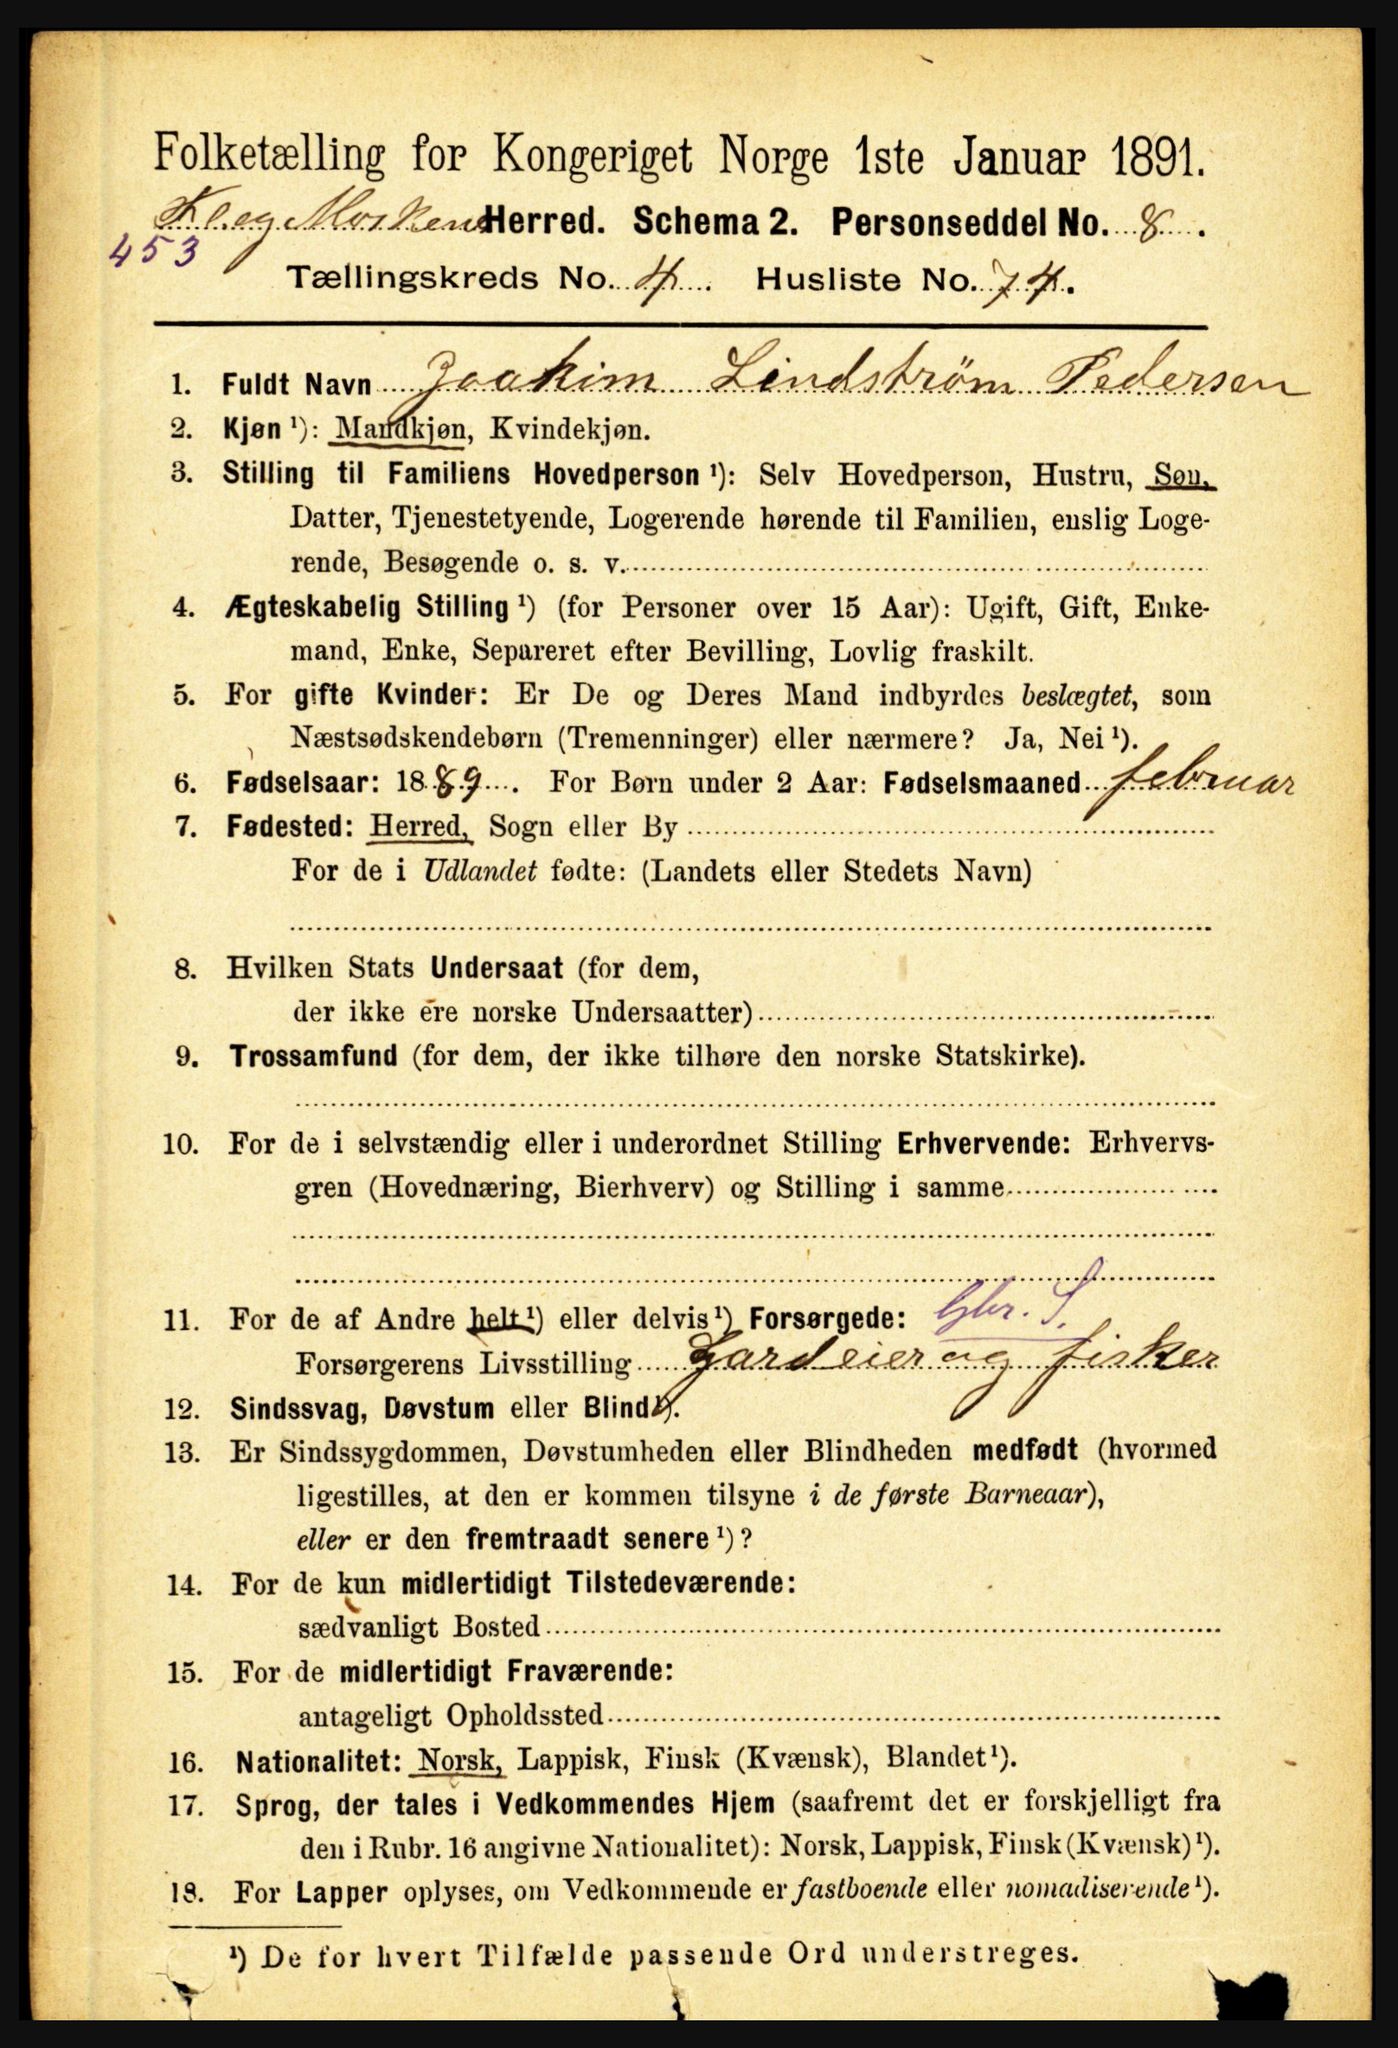 Folketælling for Kongeriget Norge 1ste Januar 1891.
Fl. og Moskenes Herred. Schema 2. Personseddel No. 8.
453
Tællingskreds No. 4. Husliste No. 74.
1. Fuldt Navn Joakim Lindstrøm Pedersen
2. Kjøn ¹): Mandkjøn, Kvindekjøn.
3. Stilling til Familiens Hovedperson ¹): Selv Hovedperson, Hustru, Søn,
Datter, Tjenestetyende, Logerende hørende til Familien, enslig Loge-
rende, Besøgende o. s. v.
4. Ægteskabelig Stilling ¹) (for Personer over 15 Aar): Ugift, Gift, Enke-
mand, Enke, Separeret efter Bevilling, Lovlig fraskilt.
5. For gifte Kvinder: Er De og Deres Mand indbyrdes beslægtet, som
Næstsødskendebørn (Tremenninger) eller nærmere? Ja, Nei ¹).
6. Fødselsaar: 1889. For Børn under 2 Aar: Fødselsmaaned februar
7. Fødested: Herred, Sogn eller By
For de i Udlandet fødte: (Landets eller Stedets Navn)
8. Hvilken Stats Undersaat (for dem,
der ikke ere norske Undersaatter)
9. Trossamfund (for dem, der ikke tilhøre den norske Statskirke).
10. For de i selvstændig eller i underordnet Stilling Erhvervende: Erhvervs-
gren (Hovednæring, Bierhverv) og Stilling i samme
11. For de af Andre helt ¹) eller delvis ¹) Forsørgede: Gbr. S.
Forsørgerens Livsstilling Gardeier og fisker
12. Sindssvag, Døvstum eller Blind ¹).
13. Er Sindssygdommen, Døvstumheden eller Blindheden medfødt (hvormed
ligestilles, at den er kommen tilsyne i de første Barneaar),
eller er den fremtraadt senere ¹)?
14. For de kun midlertidigt Tilstedeværende:
sædvanligt Bosted
15. For de midlertidigt Fraværende:
antageligt Opholdssted
16. Nationalitet: Norsk, Lappisk, Finsk (Kvænsk), Blandet ¹).
17. Sprog, der tales i Vedkommendes Hjem (saafremt det er forskjelligt fra
den i Rubr. 16 angivne Nationalitet): Norsk, Lappisk, Finsk (Kvænsk) ¹).
18. For Lapper oplyses, om Vedkommende er fastboende eller nomadiserende ¹).
¹) De for hvert Tilfælde passende Ord understreges.